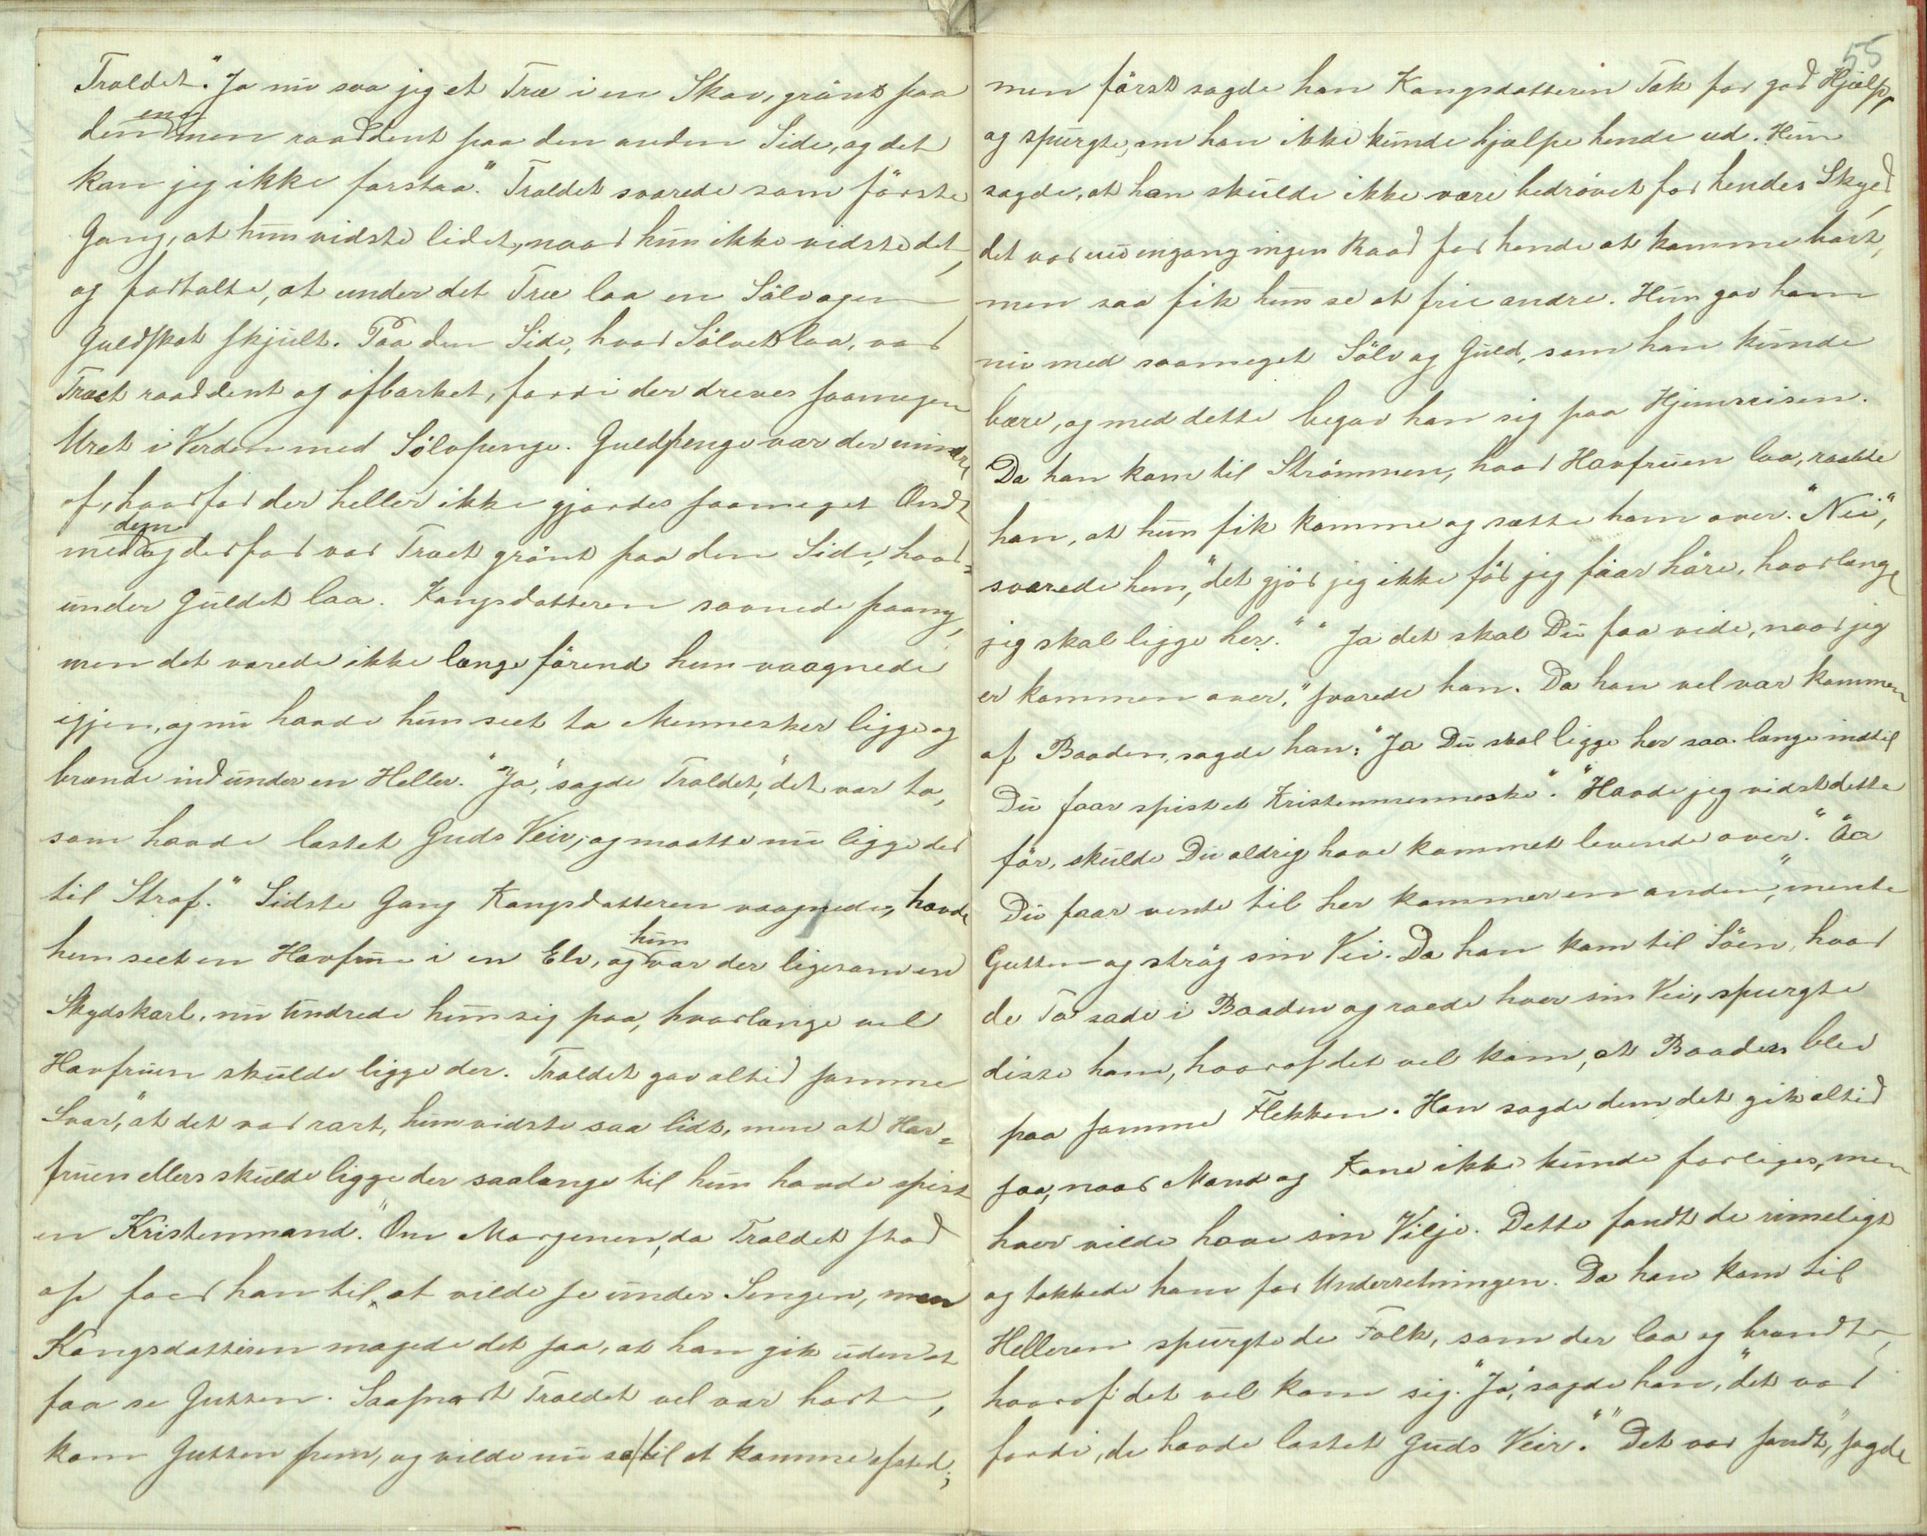 Troldet." Ja nu saa jeg et Træ i en Skov, grönt paa
den ene men raaddent paa den anden Side, og det
kan jeg ikke forstaa." Troldet svarede som förste
Gang, at hun vidste lidet, naar hun ikke vidste det,
og fortalte, at under det Træ laa en Sölv og en
Guldskat skjult. Paa den Side, hvor Sölvet laa, var
Træet raaddent og afbarket, fordi der dreves saamegen
Uret i Verden med Sölvpenge. Guldpenge var der mindre
af, hvorfor der heller ikke gjordes saameget Ondt
med dem og derfor var Træet grönt paa den Side, hvor-
under Guldet laa. Kongsdatteren sovnede paany,
men det varede ikke længe förend hun vaagnede
igjen, og nu havde hun seet to Mennesker ligge og
brænde ind under en Heller. "Ja," sagde Troldet, "det var to,
som havde lastet Guds Veir, og maatte nu ligge der
til Straf." Sidste Gang Kongsdatteren vaagnede, havde
hun seet en Havfrue i en Elv, og hun var der ligesom en
Skydskarl, nu undrede hun sig paa, hvorlænge vel
Havfruen skulde ligge der. Troldet gav altid samme
Svar, "at det var rart, hun vidste saa lidt, men at Hav-
fruen ellers skulde ligge der saalænge til hun havde spist
en Kristenmand." Om Morgenen, da Troldet stod
op foer han til, at vilde se under Sengen, men
Kongsdatteren magede det saa, at han gik uden at
faa se Gutten. Saasnart Troldet vel var borte,
kom Gutten frem, og vilde nu se til at komme afsted;
55
men först sagde han Kongsdatteren Tak for god Hjælp,
og spurgte, om han ikke kunde hjælpe hende ud. Hun
sagde, at han skulde ikke være bedrövet for hendes Skyld,
det var nu engang ingen Raad for hende at komme bort,
men saa fik hun se at frie andre. Hun gav ham
nu med saameget Sölv og Guld, som han kunde
bære, og med dette begav han sig paa Hjemreisen.
Da han kom til Strömmen, hvor Havfruen laa, raabte
han, at hun fik komme og sætte ham over. "Nei",
svarede hun, "det gjör jeg ikke för jeg faar höre, hvorlænge
jeg skal ligge her." "Ja det skal Du faa vide, naar jeg
er kommen over," svarede han. Da han vel var kommen
af Baaden, sagde han: "Ja Du skal ligge her saa længe indtil
Du faar spist et Kristenmenneske". "Havde jeg vidst dette
för, skulde Du aldrig have kommet levende over." "Aa
Du faar vente til her kommer en anden," mente
Gutten og strög sin Vei. Da han kom til Söen, hvor
de To sade i Baaden og roede hver sin Vei, spurgte
disse ham, hvoraf det vel kom, at Baaden blev
paa samme Flekken. Han sagde dem det gik altid
saa, naar Mand og Kone ikke kunde forliges, men
hver vilde have sin Vilje. Dette fandt de rimeligt
og takkede ham for Underretningen. Da han kom til
Helleren spurgte de Folk, som der laa og brændte,
hvoraf det vel kom sig. "Ja," sagde han, "det var
fordi, de havde lastet Guds Veir." "Det var sandt," sagde